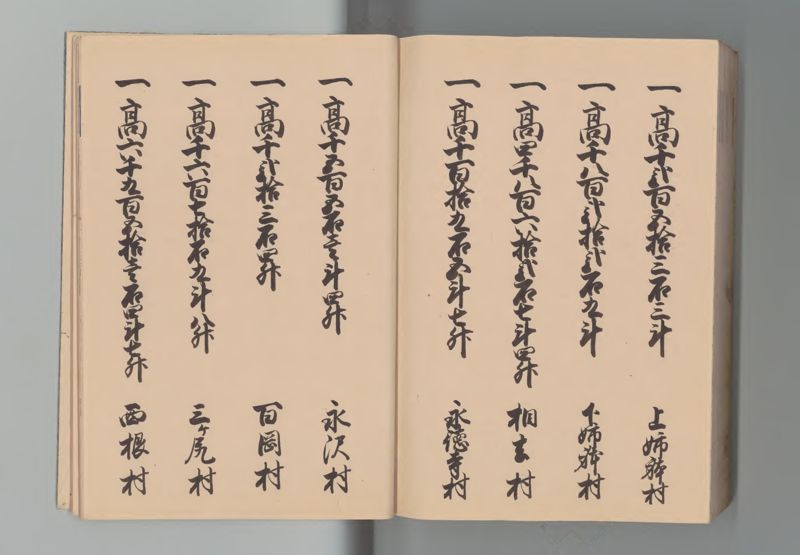 一高千弐百五拾三石三斗 上姉躰村
一高千八百弐拾弐石九斗 下姉躰村
一高四千八百六拾弐石七斗四升 相去村
一高千百拾九石五斗七升 永徳寺村
一高千五百五石壱斗四升 永沢村
一高千弐拾三石四升 百岡村
一高千六百七拾石九斗八升 三ヶ尻村
一高六千九百五拾壱石四斗七升 西根村